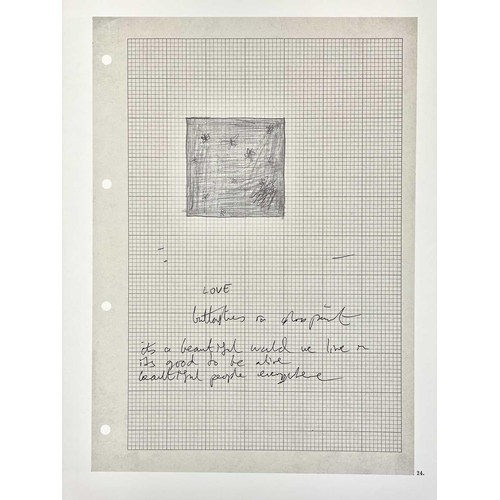 LOVE
butterflies on gloss paint
its a beautiful world we live in
its good to be alive
beautiful people everywhere
24.